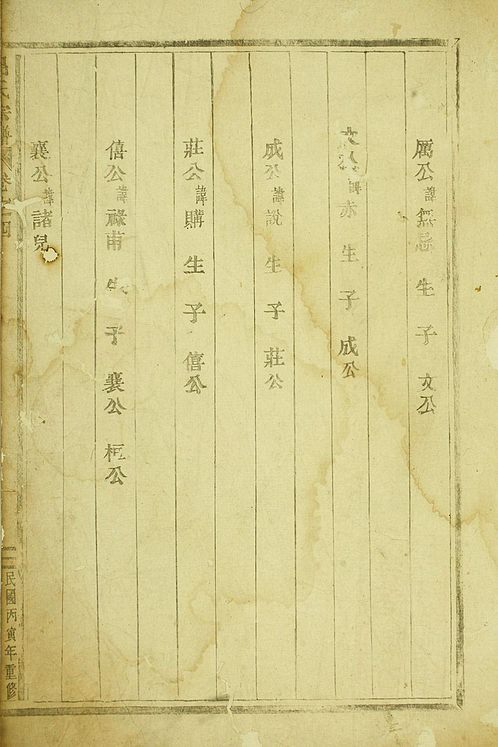 厲公諱無忌生子文公
文公諱赤生子成公
成公諱說生子莊公
莊公諱購生子僖公
僖公諱祿甫生子襄公桓公
襄公諱諸兒
氏宗譜卷之四
一
民國丙寅年重修